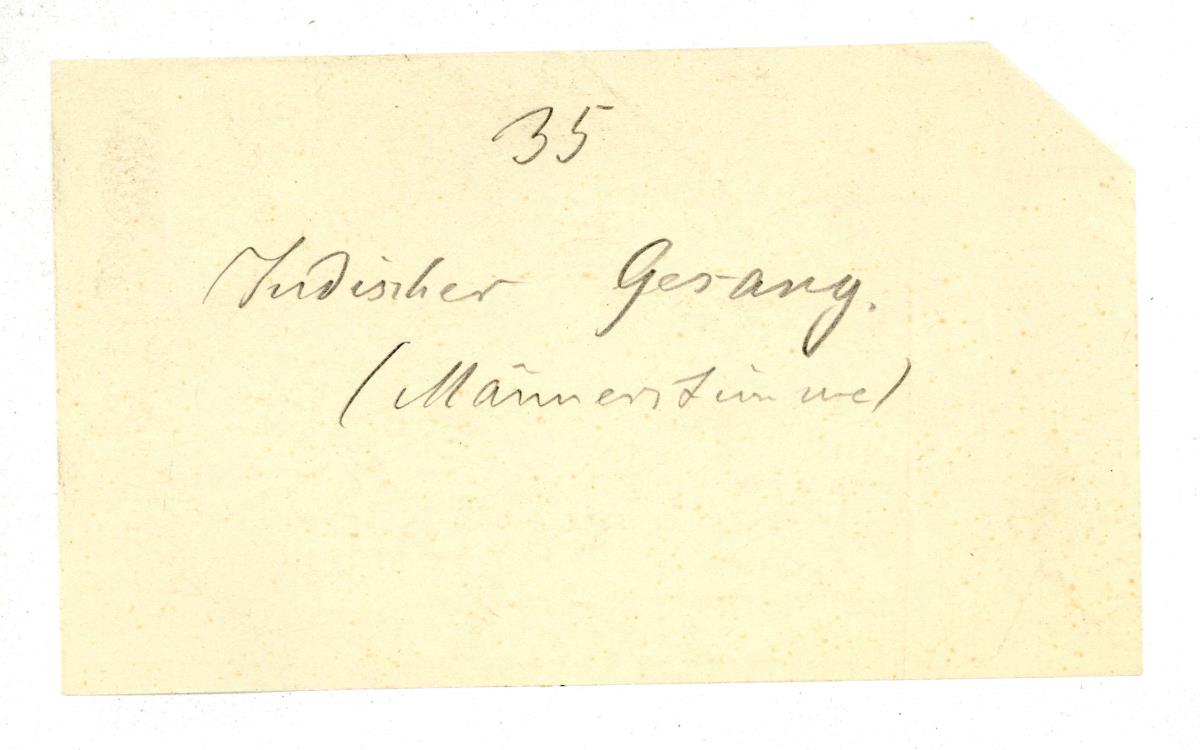 35
Indischer Gesang.
(Männerstimme)